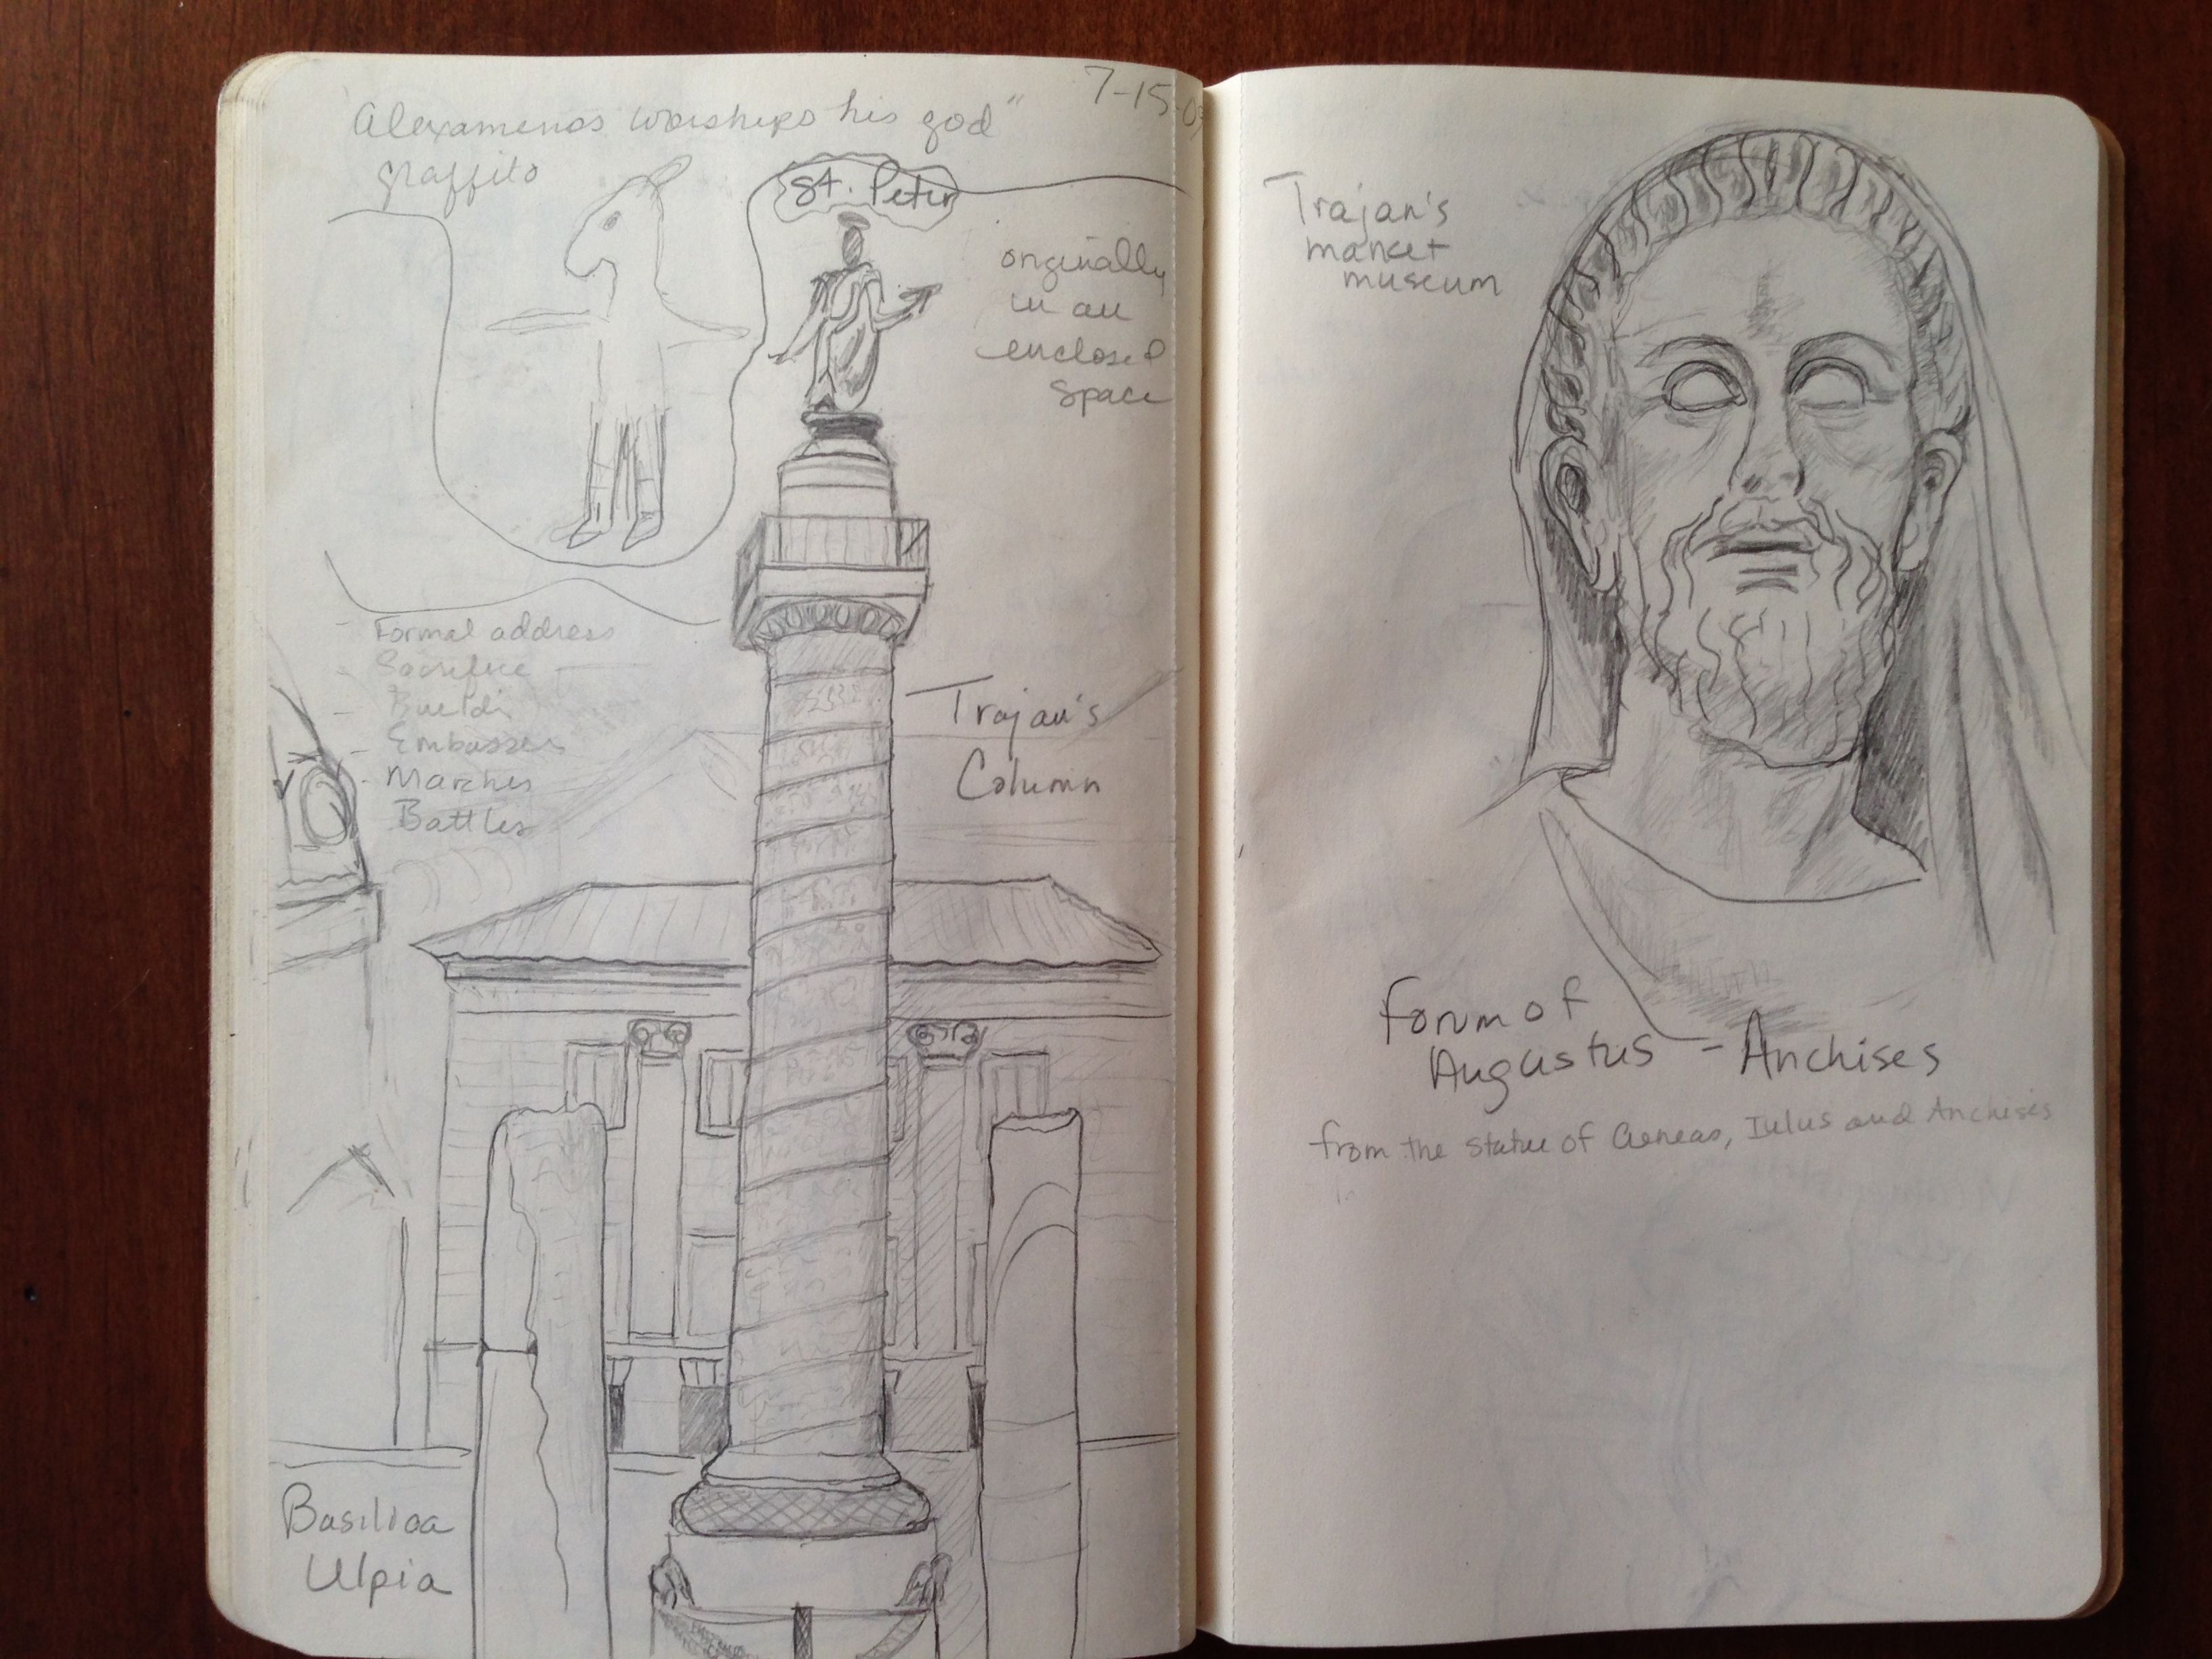 Alexamenos worships his god"
graffito
7-15-09
St. Peter
originally
in an
enclosed
space
- Formal address
- Sacrifice
- Builds
- Embassies
- Marches
Battles
Trajan's
Column
Basilica
Ulpia
Trajan's
market
museum
Forum of
Augustus - Anchises
from the statue of Aeneas, Iulus and Anchises